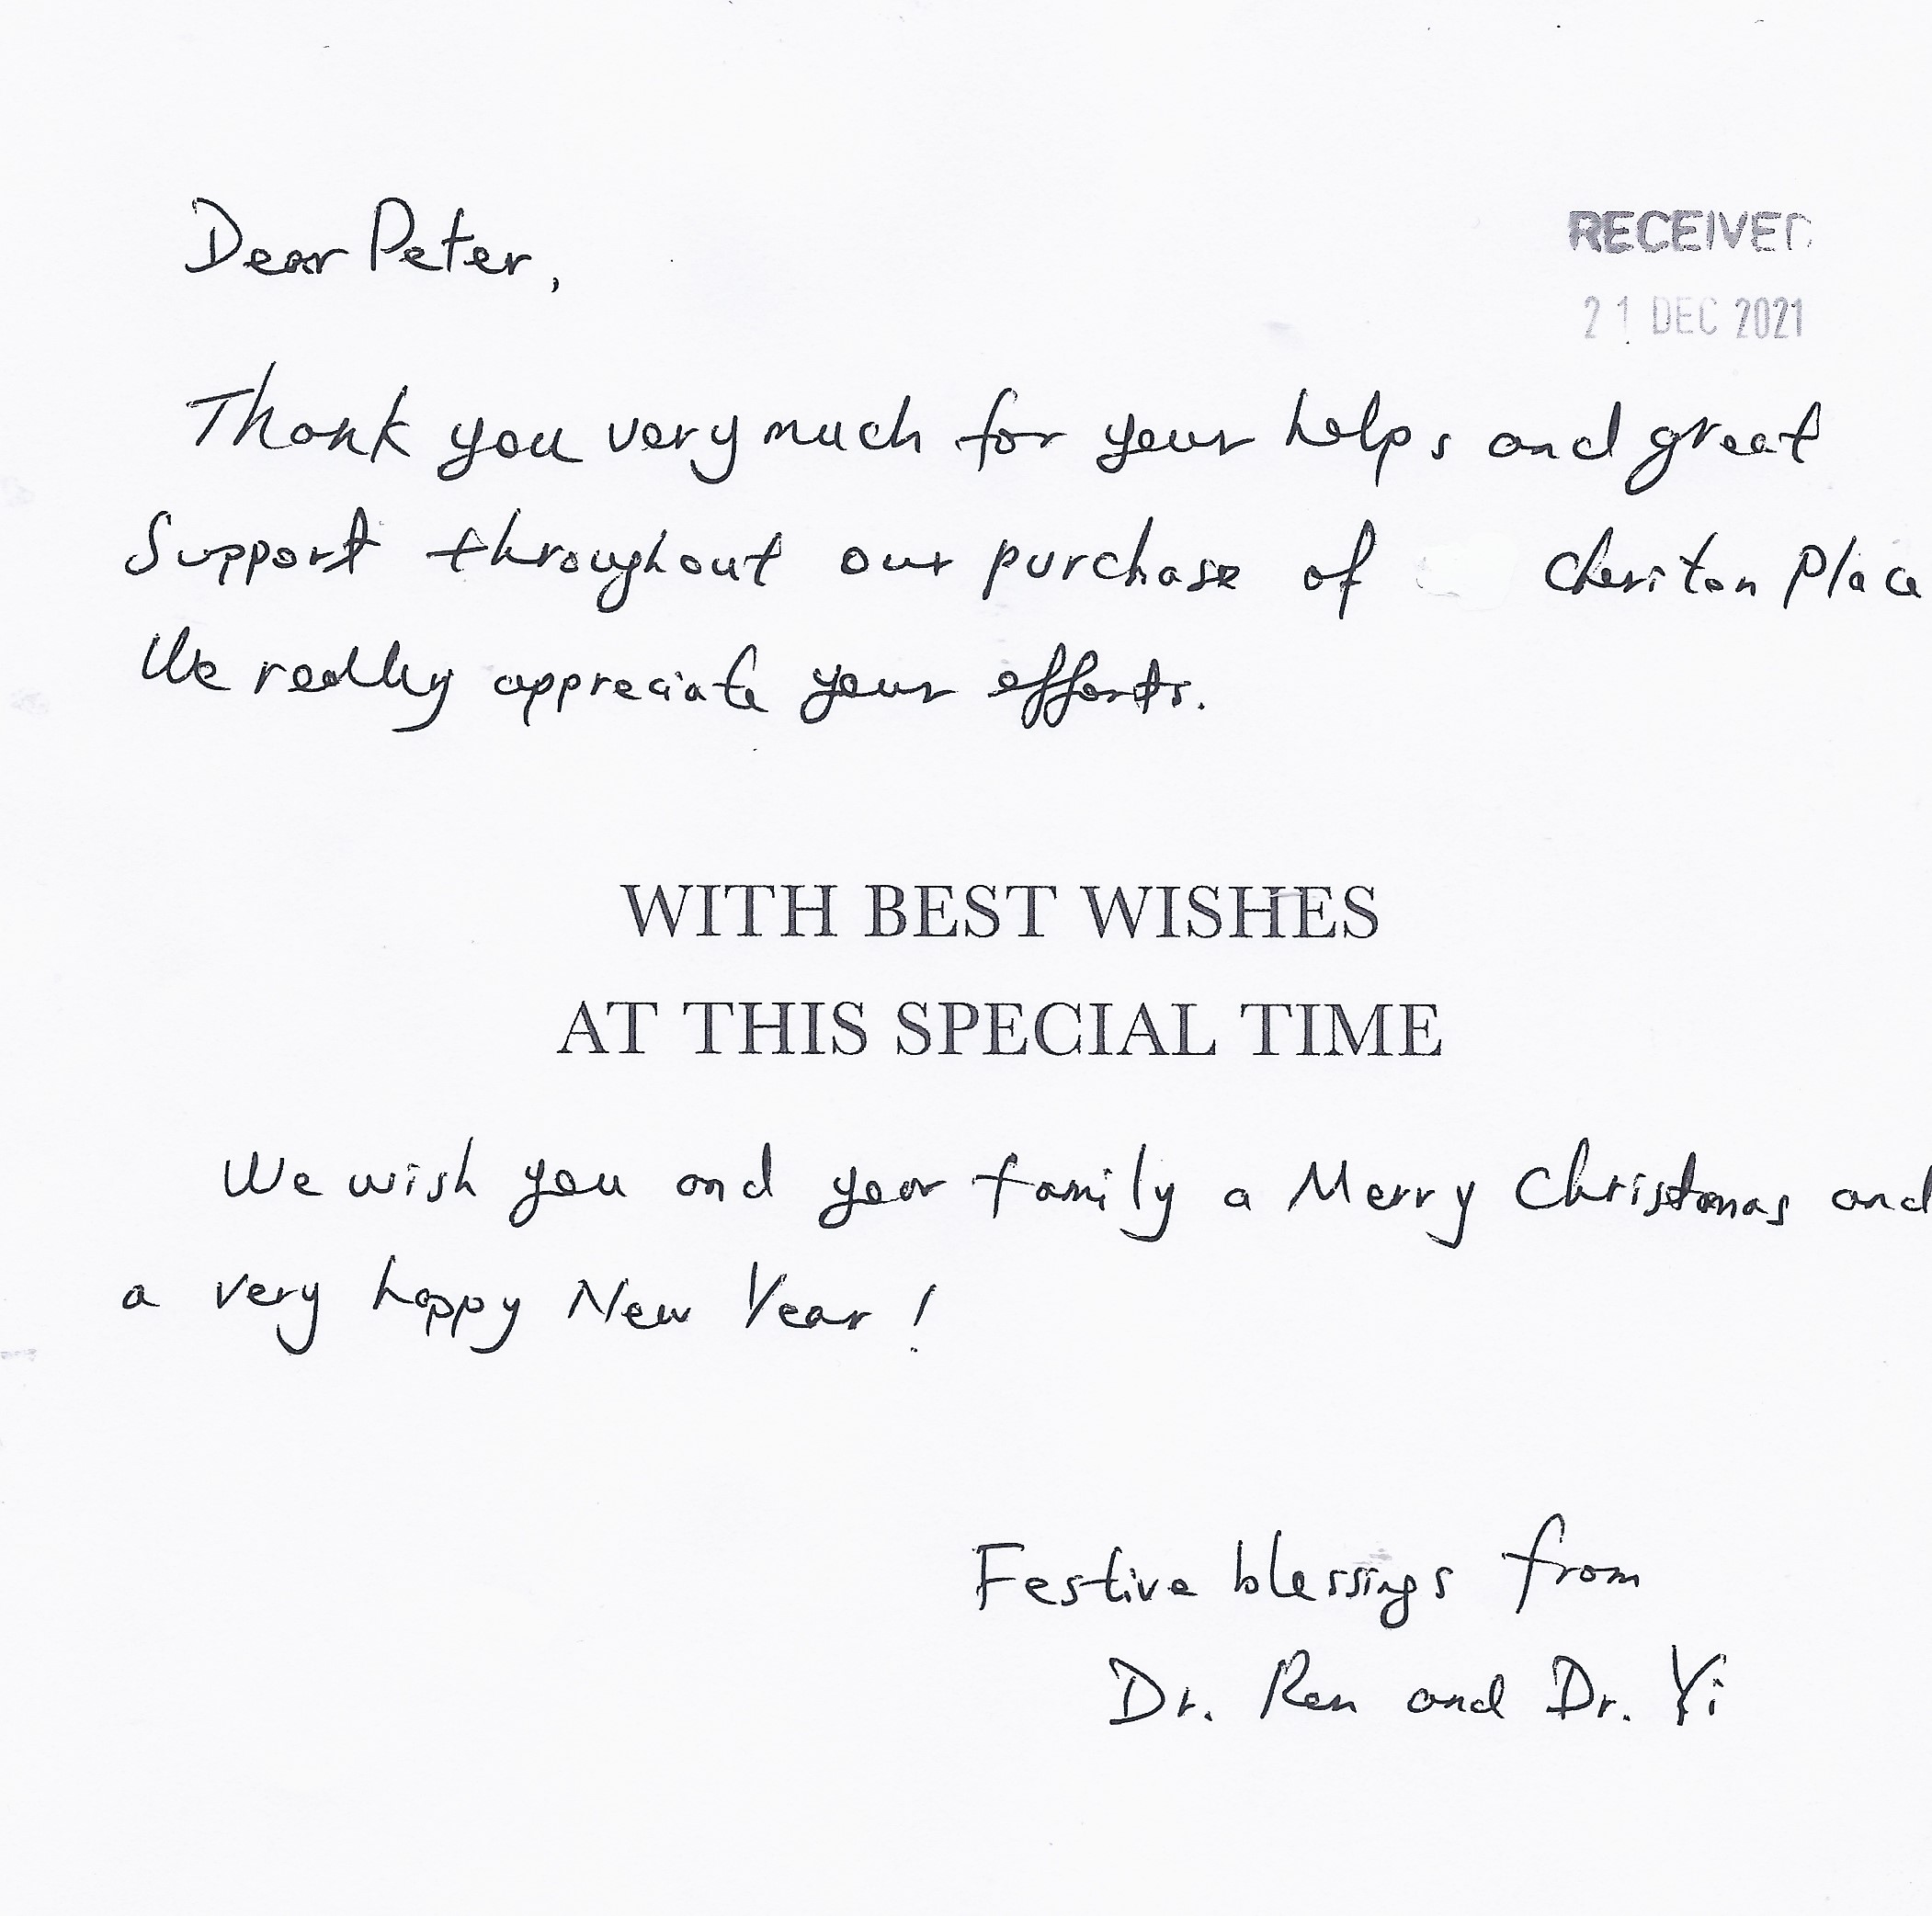 Dear Peter,
RECEIVED
21 DEC 2021
Thank you very much for your helps and great
Support throughout our purchase of Cheriton Place
We really appreciate your efforts.
WITH BEST WISHES
AT THIS SPECIAL TIME
We wish you and your family a Merry Christmas and
a very happy New Year!
Festive blessings from
Dr. Ren and Dr. Yi